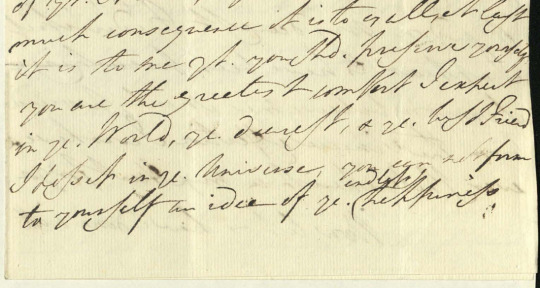 much consequence it is to us all, at last
it is to me yt. you shd. preserve yourself
you are the greatest comfort I expect
in ye. World, ye. dearest, & ye. best Friend
I possess in ye. Universe, you can not form
to yourself an idea of ye. endless happiness